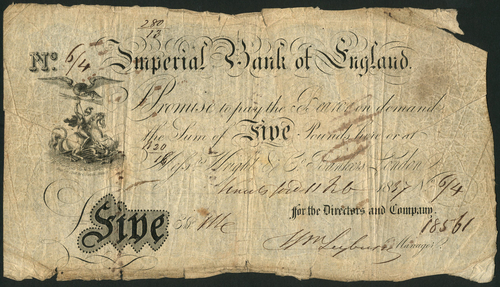 280
13
No. 6/4 Imperial Bank of England.
I Promise to pay the Bearer on demand
the Sum of Five Pounds here or at
Messrs. Wright & Co. Bankers London
11 Feb 1837 No. 6/4
for the Directors and Company,
£Five
18561
Manager